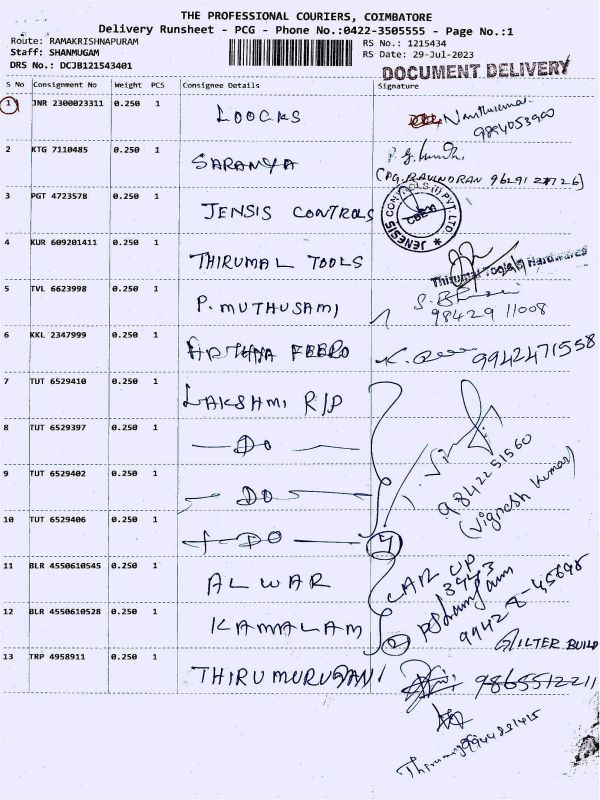 THE PROFESSIONAL COURIERS, COIMBATORE
Delivery Runsheet - PCG - Phone No.:0422-3505555 - Page No.:1
Route: RAMAKRISHNAPURAM
Staff: SHANMUGAM
DRS No.: DCJB121543401
RS No.: 1215434
RS Date: 29-Jul-2023
DOCUMENT DELIVERY
S No Consignment No Weight PCS Consignee Details Signature
1 JNR 2300023311 0.250 1 LOOCKS
9894053900
2 KTG 7110485 0.250 1 SARANYA
(PG.RAVINDRAN 9629122726)
3 PGT 4723578 0.250 1 JENSIS CONTROLS
JENESIS CONTROLS (I) PVT. LTD.
4 KUR 609201411 0.250 1 THIRUMAL TOOLS
Thirumal Tools & Hardwares
5 TVL 6623998 0.250 1 P. MUTHUSAMI
98429 11008
6 KKL 2347999 0.250 1
9942471558
7 TUT 6529410 0.250 1 LAKSHMI R/P
8 TUT 6529397 0.250 1 — DO —
9842251560
(Vignesh Kumar)
9 TUT 6529402 0.250 1 — DO —
10 TUT 6529406 0.250 1 — DO — 4
11 BLR 4550610545 0.250 1 ALWAR
CAR UP
3943
12 BLR 4550610528 0.250 1 KAMALAM 2
99428-45695
FILTER BUILD
13 TRP 4958911 0.250 1 THIRUMURUGANI
9865512211